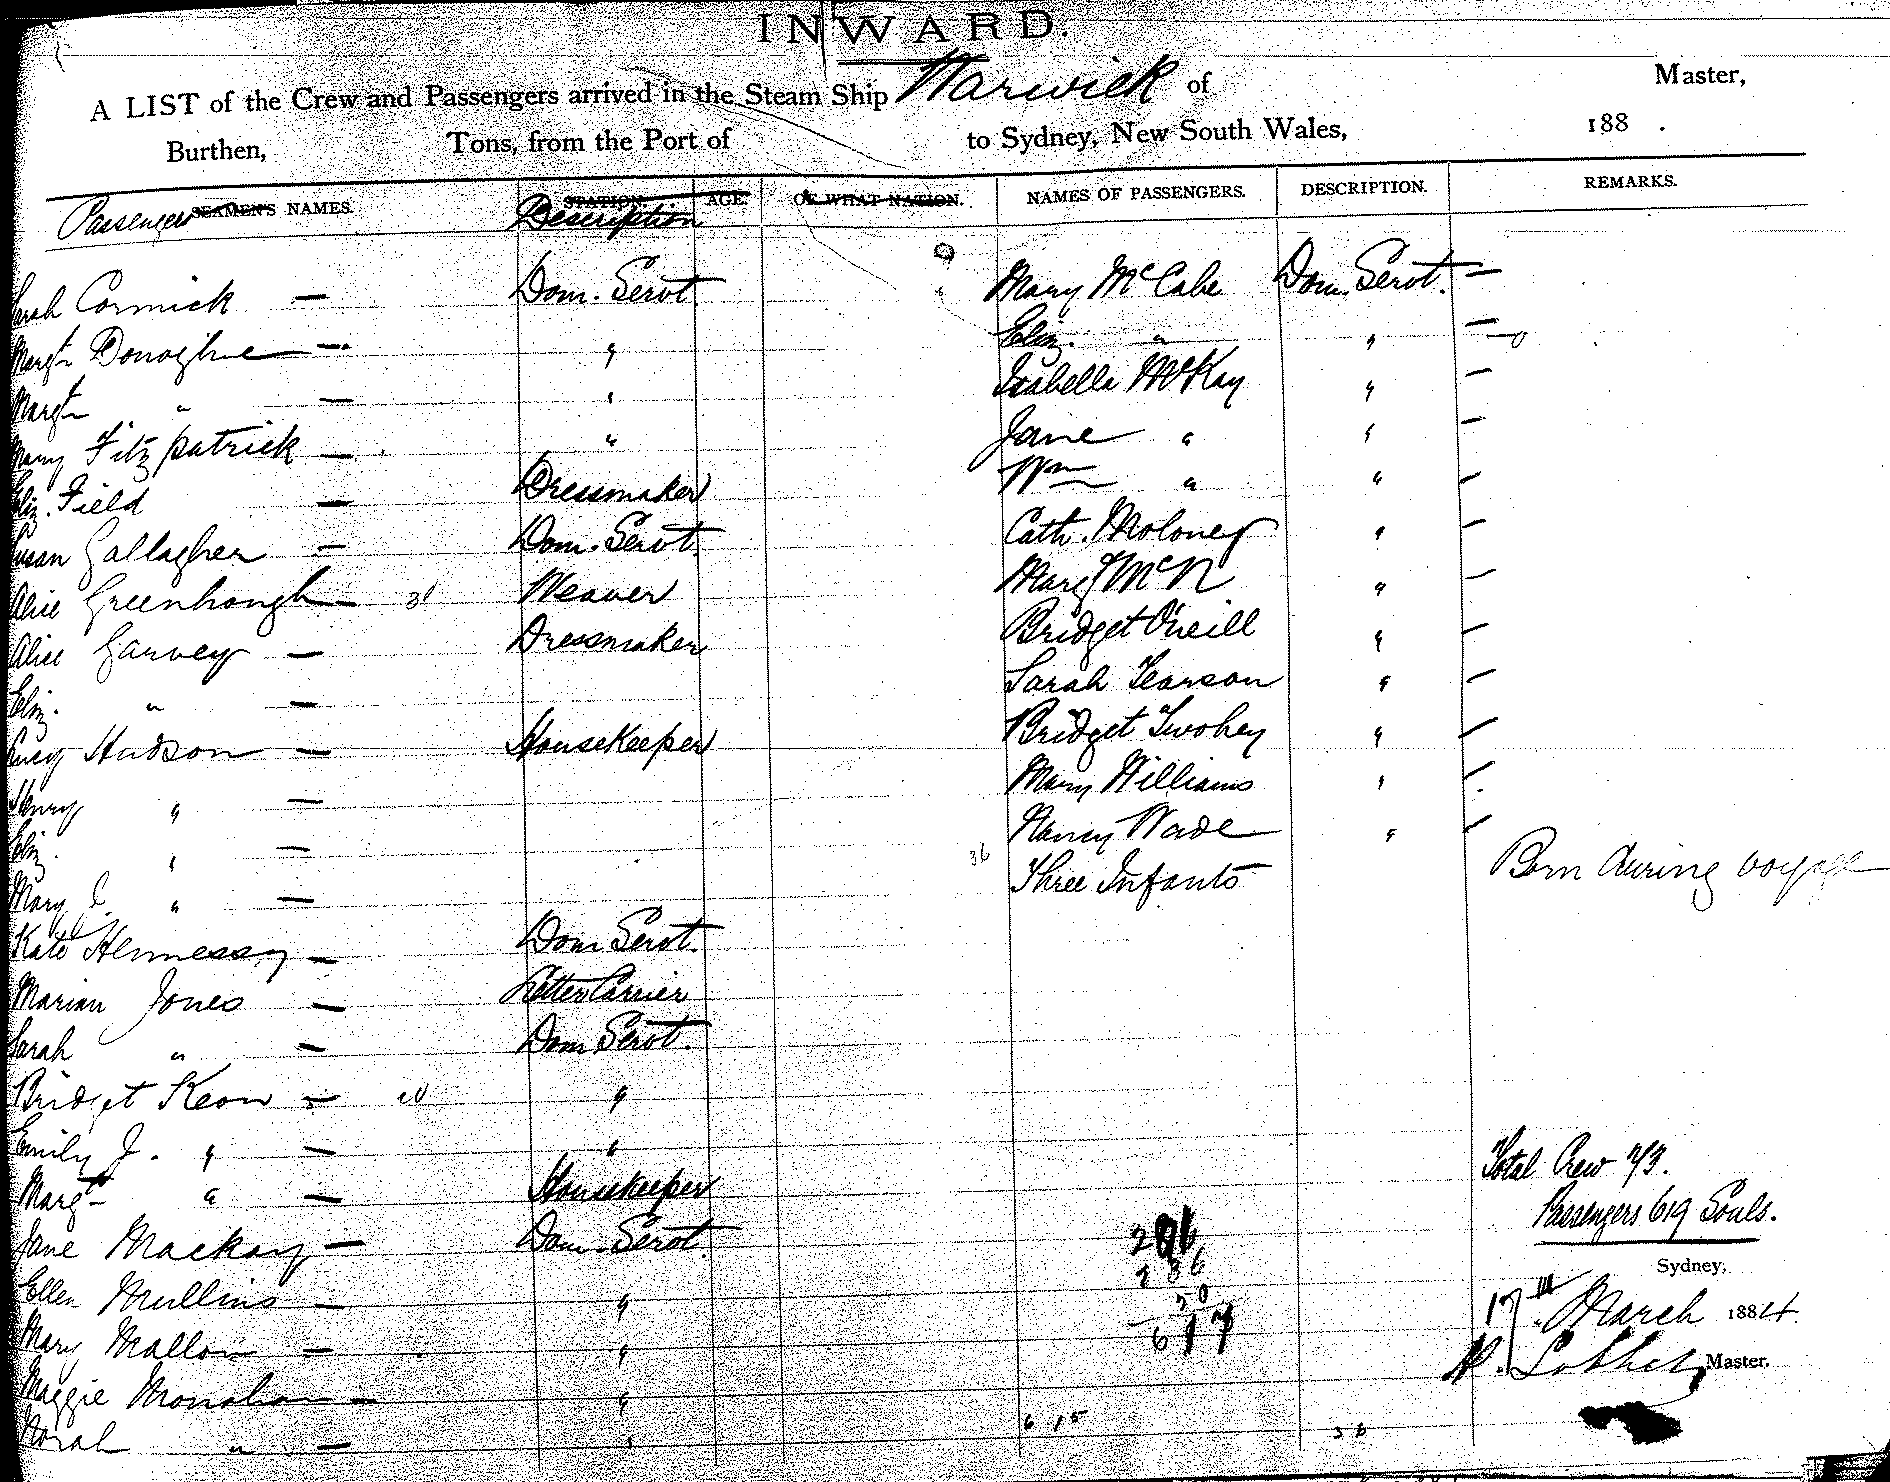 INWARD.
A LIST of the Crew and Passengers arrived in the Steam Ship Warwick of Master,
Burthen, Tons, from the Port of to Sydney, New South Wales, 188 .
Passengers SEAMEN'S NAMES. STATION Description AGE. OF WHAT NATION. NAMES OF PASSENGERS. DESCRIPTION. REMARKS.
Sarah Cormick — Dom. Servt Mary McCabe Dom. Servt. —
Margt Donoghue — " Eliz. " " —
Margt " — " Isabella McKay " —
Mary Fitzpatrick — " Jane " " —
Eliz. Field — Dressmaker Wm " " —
Susan Gallagher — Dom. Servt. Cath. Moloney " —
Alice Greenhough — Weaver Margt McN " —
Alice Garvey — Dressmaker Bridget O'Neill " —
Eliz. " — Sarah Pearson " —
Lucy Hudson — Housekeeper Bridget Twohey " —
Henry " — Mary Williams " —
Eliz. " — Nancy Wade " —
Mary J. " — 36 Three Infants Born during voyage
Kate Hennessy — Dom Servt.
Marian Jones — Letter Carrier
Sarah " — Dom Servt.
Bridget Keon — "
Emily J. " — " Total Crew 73.
Margt " — Housekeeper Passengers 619 Souls.
Jane Mackay — Dom. Servt. Sydney,
Ellen Mullins — " 17th March 1884.
Mary Mallon — " 617 Master.
Maggie Monahan — "
Norah " — " 615 36